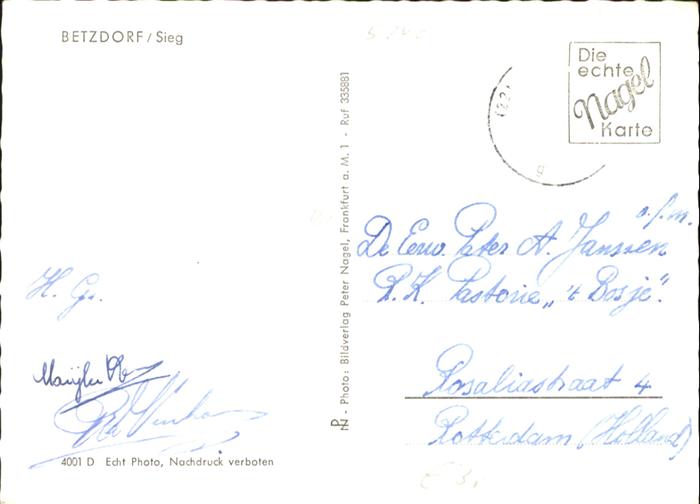 BETZDORF / Sieg
Die
echte
Nagel
Karte
Photo: Bildverlag Peter Nagel, Frankfurt a. M. 1 - Ruf 335881
o.f.m.
De Eerw. Pater A. Janssen
R.K. Pastorie "'t Bosje".
Rosaliastraat 4
Rotterdam (Holland)
H. Gr.
4001 D Echt Photo, Nachdruck verboten